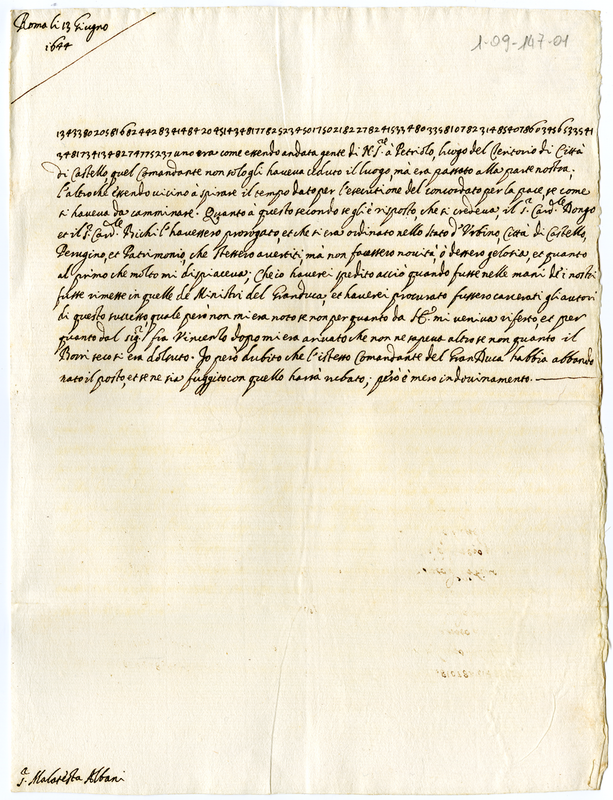 Roma li 13 Giugno
1644
1-09-147-01
uno era come essendo andata gente di N. S.re à Petriolo, luogo del Teritorio di Città
di Castello, quel Comandante non solo gli haveva ceduto il luogo, mà era passato alla parte nostra.
l'altro che essendo vicino à spirare il tempo dato per l'essecutione del concordato per la pace, se come
si haveva da camminare. Quanto à questo secondo se gli è risposto, che si credeva, il S.r Card.le Dongo
et il S.r Card.le Bichi l'havessero prorogato, et che si era ordinato nello Stato d'Urbino, Città di Castello,
Perugino, et Patrimonio, che stessero avertiti, mà non facessero novità, ò dessero gelosia, et quanto
al primo che molto mi dispiaceva, Che io haverei spedito acciò quando fusse nelle mani de i nostri
fusse rimesse in quelle de Ministri del Granduca, et haverei procurato fussero carcerati gli autori
di questo successo quale però non mi era noto se non per quanto da mi veniva riferto et per
quanto dal sig.r fra Vincenzo dopo mi era arivato che non ne sapeva altro se non quanto il
Borri seco si era doluto. Io però dubito che l'istesso Comandante del GranDuca habbia abbando
nato il posto, et se ne sia fuggito con quello havrà rubato, però è mero indovinamento.
S.r Malatesta Albani